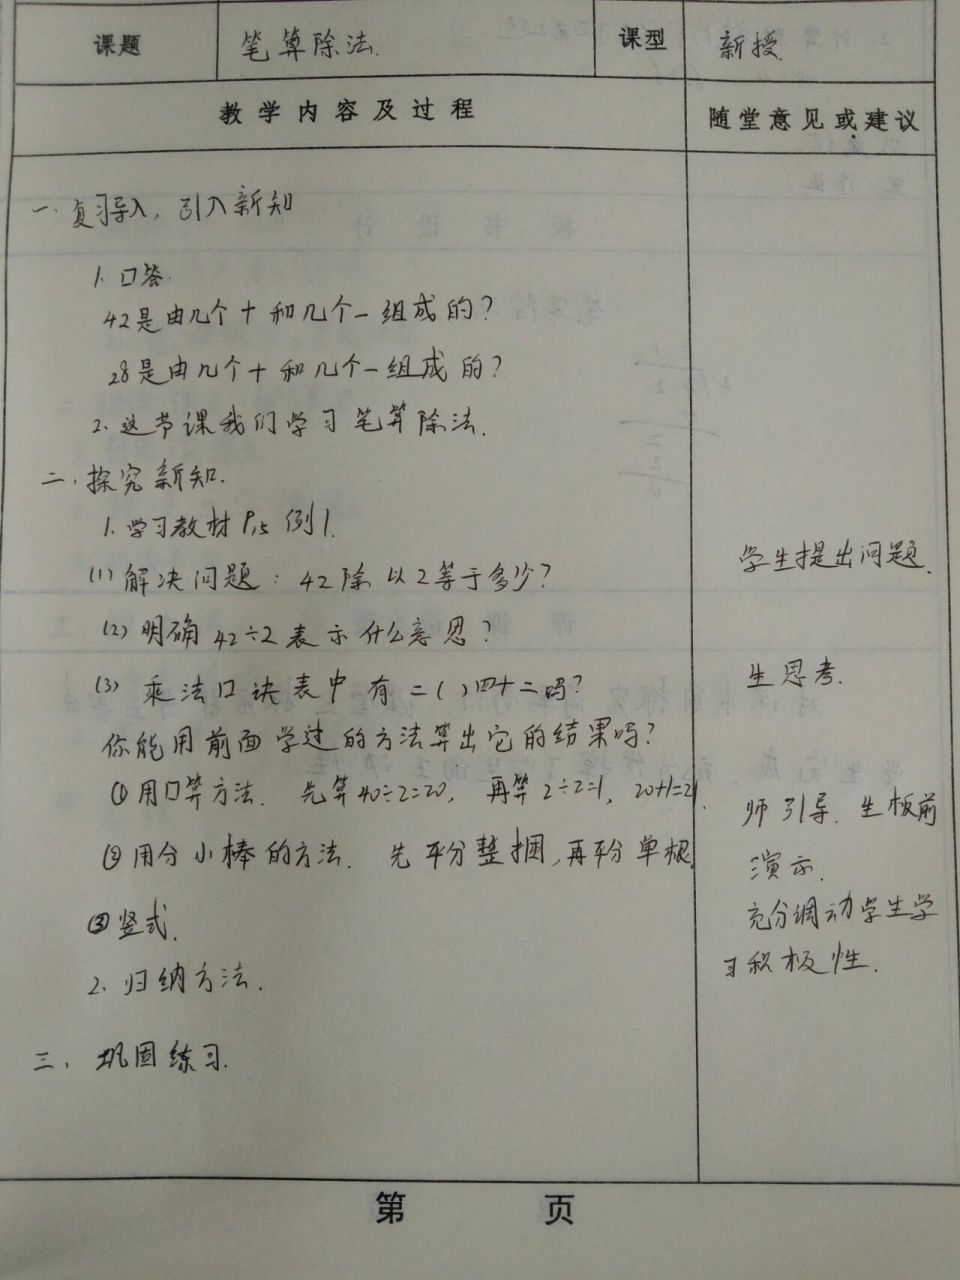 课题 笔算除法. 课型 新授.
教学内容及过程 随堂意见或建议
一.复习导入，引入新知
1.口答:
42是由几个十和几个一组成的？
28是由几个十和几个一组成的？
2.这节课我们学习笔算除法.
二.探究新知.
1.学习教材P15例1.
(1)解决问题：42除以2等于多少？
学生提出问题.
(2)明确42÷2表示什么意思？
(3)乘法口诀表中有二( )四十二吗？
生思考.
你能用前面学过的方法算出它的结果吗？
①用口算方法. 先算40÷2=20, 再算2÷2=1, 20+1=21.
师引导.生板前
②用分小棒的方法. 先平分整捆,再平分单根.
演示.
③竖式.
充分调动学生学
习积极性.
2.归纳方法.
三.巩固练习.
第 页